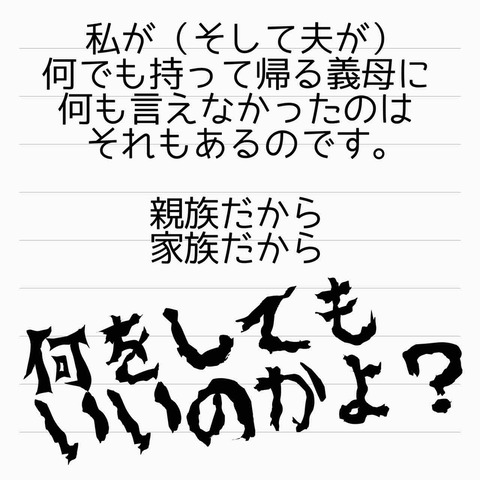 私が（そして夫が）
何でも持って帰る義母に
何も言えなかったのは
それもあるのです。
親族だから
家族だから
何をしても
いいのかよ？